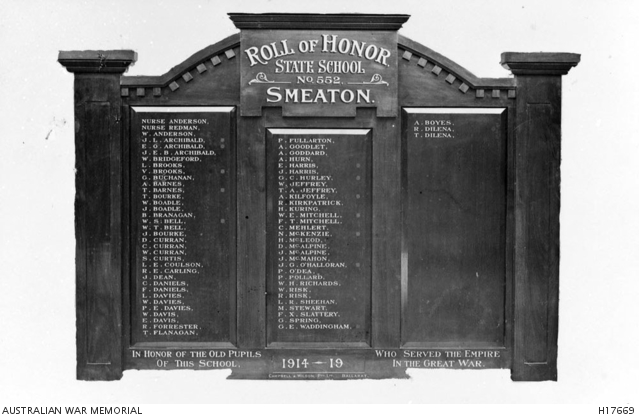 ROLL OF HONOR
STATE SCHOOL
NO. 552.
SMEATON.
NURSE ANDERSON.
NURSE REDMAN.
W. ANDERSON.
J. L. ARCHIBALD.
E. O. ARCHIBALD.
J. E. B. ARCHIBALD.
W. BRIDGEFORD.
L. BROOKS.
V. BROOKS.
G. BUCHANAN.
A. BARNES.
T. BARNES.
T. BOURKE.
W. BOADLE.
J. BOADLE.
B. BRANAGAN.
W. S. BELL.
W. T. BELL.
J. BOURKE.
D. CURRAN.
C. CURRAN.
W. CURRAN.
S. CURTIS.
L. E. COULSON.
R. E. CARLING.
J. DEAN.
C. DANIELS.
F. DANIELS.
L. DAVIES.
W. DAVIES.
P. E. DAVIES.
W. DAVIS.
E. DAVIS.
R. FORRESTER.
T. FLANAGAN.
P. FULLARTON.
A. GOODLET.
A. GODDARD.
A. HURN.
E. HARRIS.
J. HARRIS.
G. C. HURLEY.
W. JEFFREY.
T. A. JEFFREY.
A. KILFOYLE.
R. KIRKPATRICK.
H. KURING.
W. E. MITCHELL.
F. T. MITCHELL.
C. MEHLERT.
N. MCKENZIE.
H. MCLEOD.
D. MCALPINE.
J. MCALPINE.
J. MCMAHON.
J. G. O'HALLORAN.
P. O'DEA.
P. POLLARD.
W. H. RICHARDS.
W. RISK.
R. RISK.
L. R. SHEEHAN.
M. STEWART.
F. X. SLATTERY.
G. SPRING.
G. E. WADDINGHAM.
A. BOYES.
R. DILENA.
T. DILENA.
IN HONOR OF THE OLD PUPILS
OF THIS SCHOOL.
1914-19
WHO SERVED THE EMPIRE
IN THE GREAT WAR.
BALLARAT
AUSTRALIAN WAR MEMORIAL
H17669